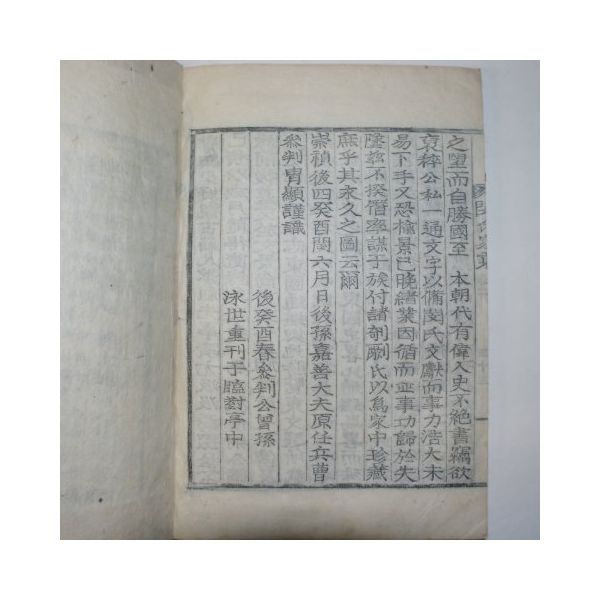 之望而自勝國至 本朝代有偉人史不絶書竊欲
裒稡公私一通文字以備閔氏文獻而事力浩大未
易下手又恐楡景已晩繕葺因循而並事功歸於失
墜玆不揆僭率謀于族付諸剞劂氏以爲家中珍藏
庶乎其永久之圖云爾
崇禎後四癸酉閏六月日後孫嘉善大夫原任兵曹
參判胄顯謹識
後癸酉春參判公曾孫
泳世重刊于臨對亭中